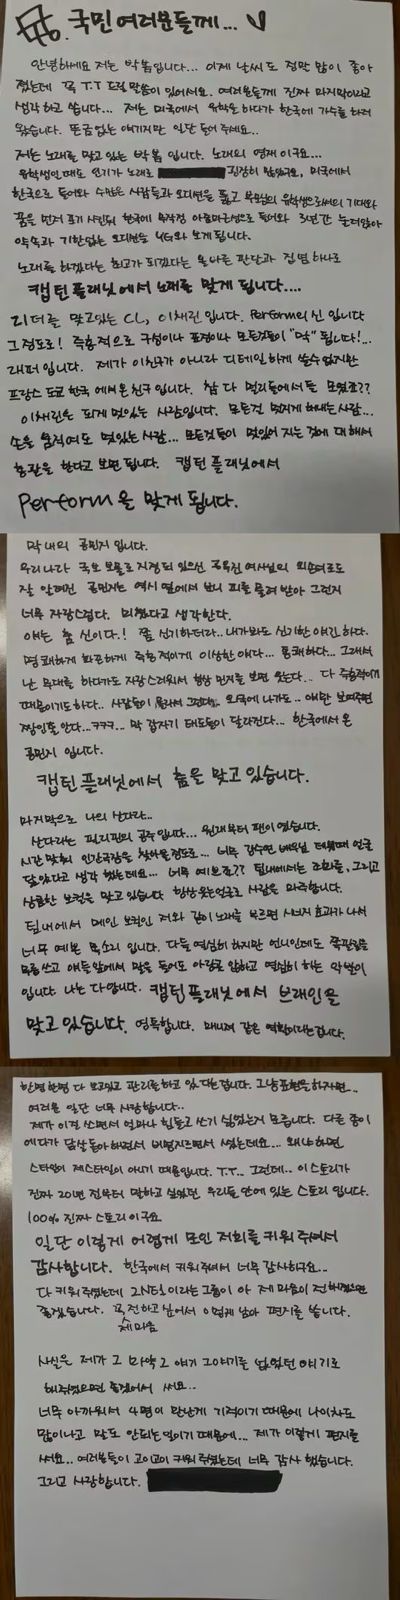 국민여러분들께...
안녕하세요 저는 박봄입니다... 이제 날씨도 정말 많이 좋아
졌는데 꼭 T.T 드릴 말씀이 있어서요. 여러분들께 진짜 마지막이라고
생각하고 씁니다... 저는 미국에서 유학을 하다가 한국에 가수를 하러
왔습니다. 뜬금없는 얘기지만 일단 들어 주세요...
저는 노래를 맡고 있는 박봄 입니다. 노래의 영재 이구요...
유학생때도 인기가 노래로 굉장히 많았구요, 미국에서
한국으로 들어와 수많은 사람들과 오디션을 뚫고 부모님의 유학생으로써의 기대와
꿈을 먼저 포기 시킨뒤 한국에 무작정 아흘리긋생으로 들어와 3년간 눌러앉아
약속과 기한없는 오디션을 YG와 보게됩니다.
노래를 하겠다는 최고가 되겠다는 올바른 판단과 집념 하나로
캡틴플래닛에서 노래를 맡게 됩니다....
리더를 맡고있는 CL, 이채린 입니다. Perform의 신 입니다
그정도로! 즉흥적으로 구성이나 표정이나 모든것들이 "딱" 됩니다!...
래퍼입니다. 제가 이친구가 아니라 디테일하게 쓸수없지만
프랑스 도쿄 한국 에서온 친구 입니다. 참 다 멀리들에서들 모였죠??
이채린은 되게 멋있는 사람입니다. 모든걸 멋지게 해내는 사람...
손을 움직여도 멋있는 사람... 모든것들이 멋있어 지는 것에 대해서
총괄을 한다고 보면 됩니다. 캡틴 플래닛에서
Perform을 맡게 됩니다.
막내의 공민지 입니다.
우리나라 국보 보물로 지정되 있으신 공옥진 여사님의 외손녀로도
잘 알려진 공민지는 역시 옆에서 보니 피를 물려받아 그런지
너무 자랑스럽다. 미쳤다고 생각한다.
얘는 춤 신이다.! 좀 신기하더라.. 내가봐도 신기한 얘긴 하다.
명쾌하게 파곤하게 즉흥적이게 이상한 얘다... 통쾌하다... 그래서
난 무대를 하다가도 자랑스러워서 항상 민지를 보면 웃는다... 다 즉흥적이기
때문이기도하다.. 사람들이 몰라서 그런데.. 외국에 나가도.. 얘만 보여주면
짱인줄 안다...ㅋㅋㅋ... 막 갑자기 태도들이 달라진다... 한국에서 온
공민지 입니다.
캡틴 플래닛에서 춤을 맡고 있습니다.
마지막으로 나의 산다라..
산다라는 필리핀의 공주입니다... 원래부터 팬이 였습니다.
시간 맞춰 인간극장을 찾아볼정도로... 너무 강수연 배우님 데뷔때 얼굴
닮았다고 생각 했는데요... 너무 예쁘죠?? 팀내에서는 조화를, 그리고
상큼한 보컬을 맡고 있습니다 항상 웃는얼굴로 사람을 마주합니다.
팀 내에서 메인 보컬인 저와 같이 노래를 부르면 시너지 효과가 나서
너무 예쁜 목소리 입니다. 다들 열심히 하지만 언니인데도 쪽팔림을
무릅 쓰고 얘들앞에서 많을 들어도 아랑곳 않하고 열심히 하는 악발이
입니다 나는 다압니다. 캡틴플래닛에서 브레인을
맡고 있습니다. 영특합니다. 매니져 같은 역할이다는겁니다.
한명한명 다 보고있고 관리를하고 있다는겁니다. 그냥표현을하자면...
여러분 일단 너무 사랑합니다..
제가 이걸 쓰면서 얼마나 힘들고 쓰기 싫었는지 모릅니다. 다른 종이
에다가 덥살놓아하면서 버벅지르면서 썼는데요... 왜냐하면
스타일이 제스타일이 아니기 때문입니다. T.T.. 그런데.. 이스토리가
진짜 20년 전부터 말하고 싶었던 우리들 안에 있는 스토리 입니다.
100% 진짜 스토리이구요
일단 이렇게 어렵게 모인 저희를 키워 주셔서
감사합니다. 한국에서 키워주셔서 너무 감사하구요...
다 키워주셨는데 2NE1 이라는 그룹이 아 제 마음이 전해졌으면
좋겠습니다. 꼭 전하고 싶어서 이렇게 남아 편지를 씁니다.
제마음
사실은 제가 그 마약 그 얘기 그얘기를 넘었던 얘기로
해주셨으면 좋겠어서 써요..
너무 아까워서 4명이 만난게 기적이기 때문에 나이차도
많이나고 말도 안되는일이기 때문에... 제가 이렇게 편지를
써요.. 여러분들이 고이고이 키워 주셨는데 너무 감사 했습니다.
그리고 사랑합니다.